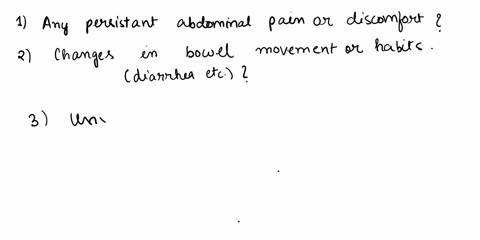 1) Any persistant abdominal pain or discomfort ?
2) Changes in bowel movement or habits.
(diarrhea etc.) ?
3) Un